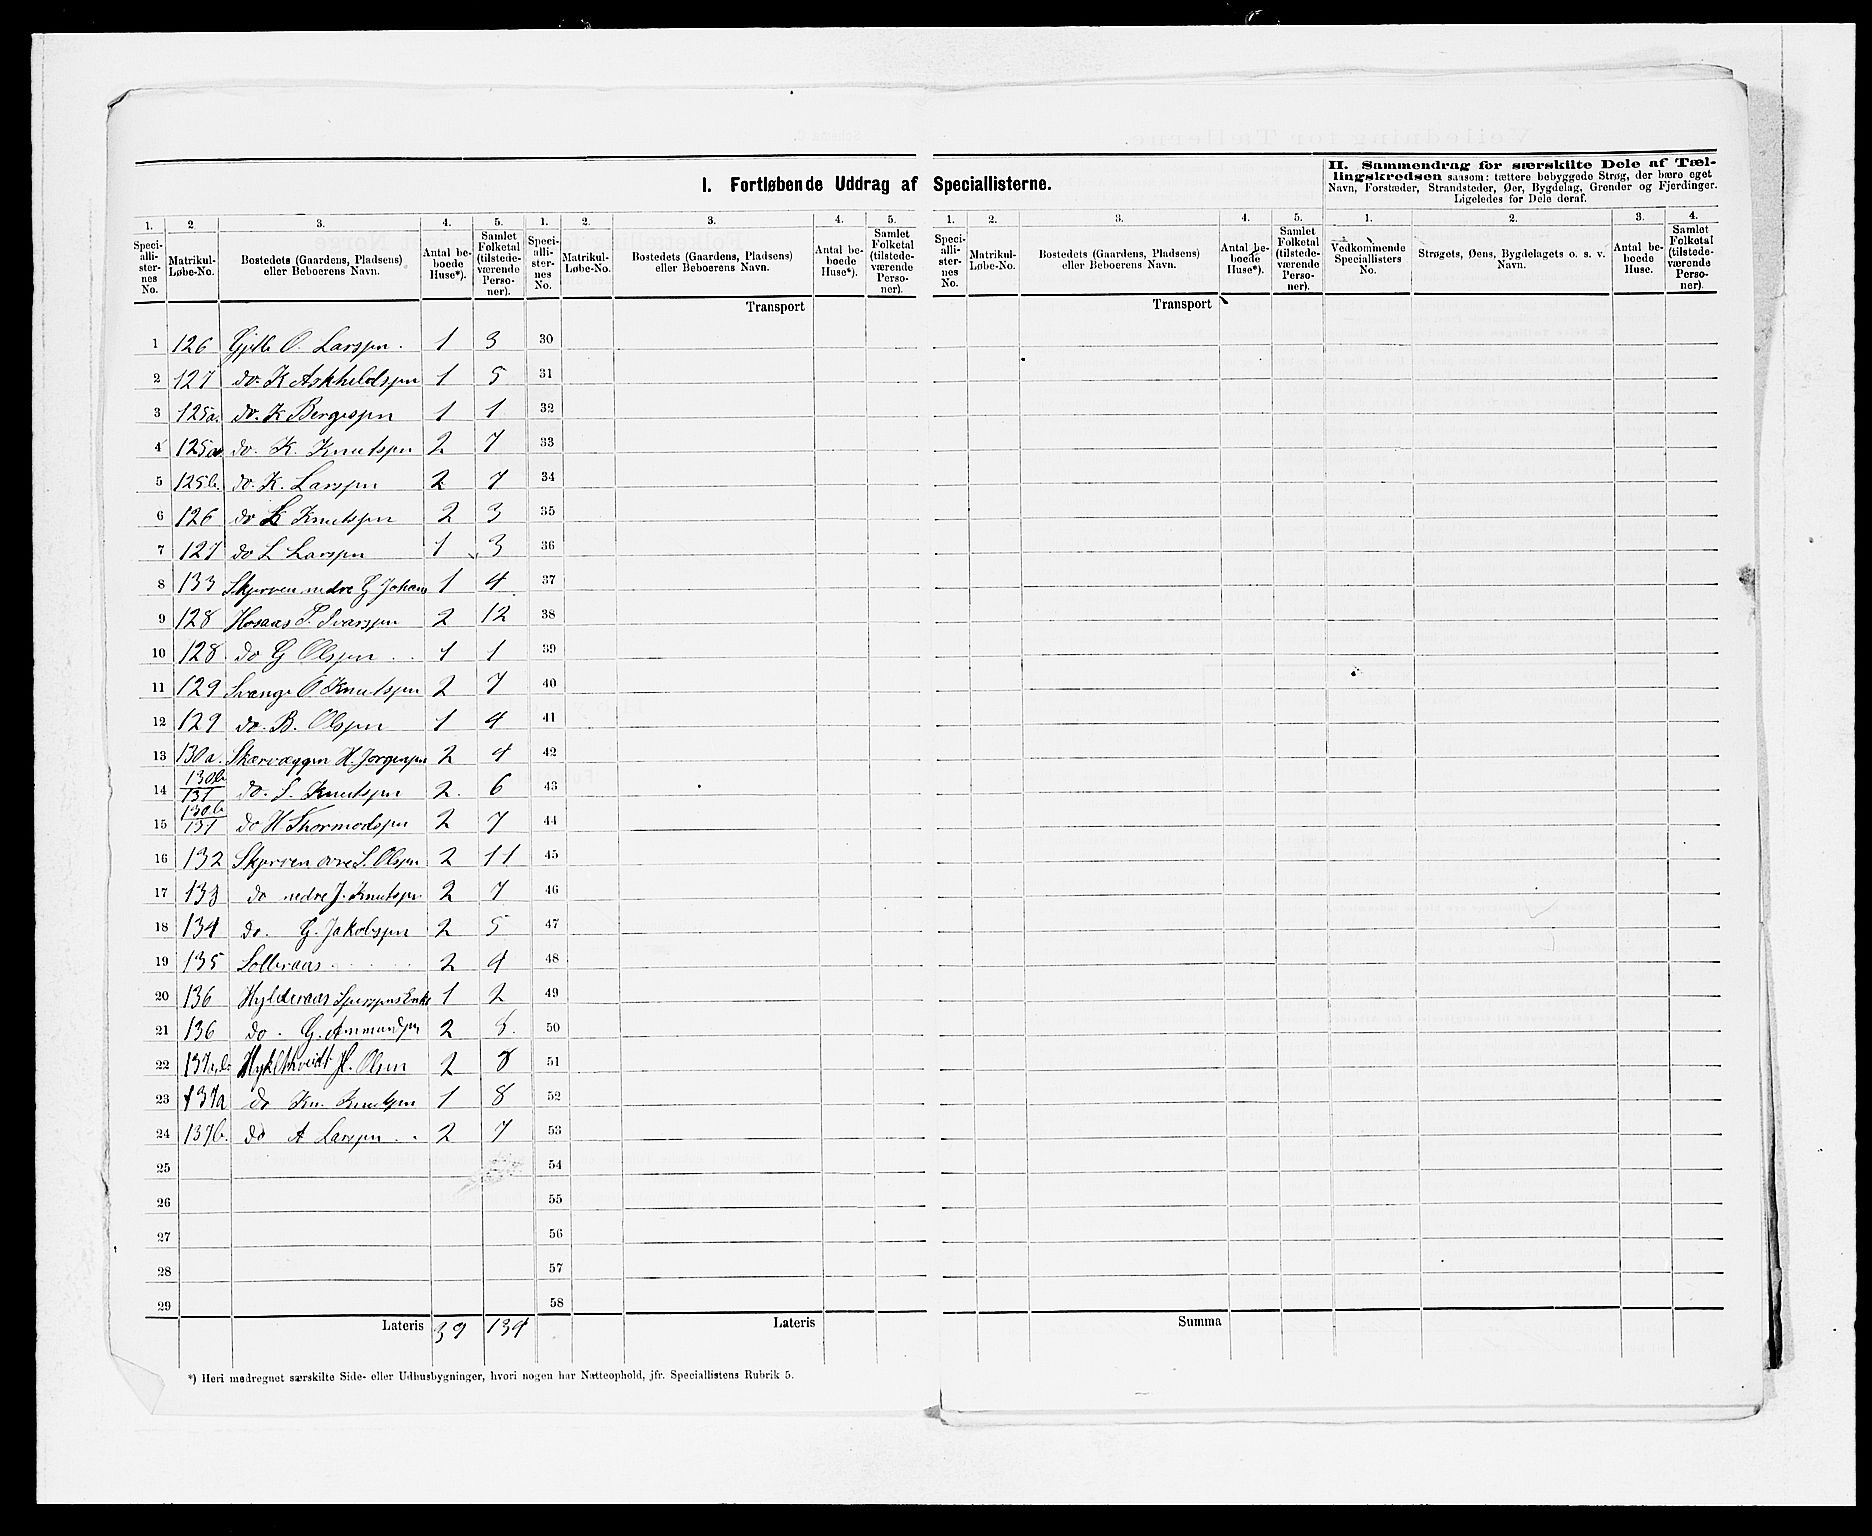 I. Fortløbende Uddrag af Speciallisterne.
II. Sammendrag for særskilte Dele af Tæl-
lingskredsen saasom: tættere bebyggede Strøg, der bære eget
Navn, Forstæder, Strandsteder, Øer, Bygdelag, Grender og Fjerdinger.
Ligeledes for Dele deraf.
1. 2 3. 4. 5. 1. 2. 3. 4. 5. 1. 2. 3. 4. 5. 1. 2. 3. 4.
Speci-alli-ster-nes No. Matrikul-Løbe-No. Bostedets (Gaardens, Pladsens) eller Beboerens Navn. Antal be-boede Huse*). Samlet Folketal (tilstede-værende Perso-ner).
Speci-alli-ster-nes No. Matrikul-Løbe-No. Bostedets (Gaardens, Pladsens) eller Beboerens Navn. Antal be-boede Huse*). Samlet Folketal (tilstede-værende Perso-ner).
Speci-alli-ster-nes No. Matrikul-Løbe-No. Bostedets (Gaardens, Pladsens) eller Beboerens Navn. Antal be-boede Huse*). Samlet Folketal (tilstede-værende Perso-ner).
Vedkommende Speciallisters No. Strøgets, Øens, Bygdelagets o. s. v. Navn. Antal be-boede Huse. Samlet Folketal (tilstede-værende Perso-ner).
Transport Transport
1 126 Gjelle O. Larssen. 1 3 30
2 127 do. K Askhildssen 1 5 31
3 125a. do. K Bergessen 1 1 32
4 125a do. K. Knutssen 2 7 33
5 125b. do. K. Larssen 2 7 34
6 126 do K Knutssen 2 3 35
7 127 do L Larssen 1 3 36
8 133 Skjerven nedre G Johans 1 4 37
9 128 Hosaas T. Ivarssen 2 12 38
10 128 do G Olssen 1 1 39
11 129 Svange O Knutssen 2 7 40
12 129 do. B. Olssen 1 4 41
13 130a. Skærvæggen H. Jørgenssen 2 4 42
14 130b/131 do. S. Knutssen 2. 6 43
15 130b/131 do H Thormodssen 2 7 44
16 132 Skjerven øvre S. Olssen 2 11 45
17 133 do nedre J. Knutssen 2 7 46
18 134 do. G. Jakobssen 2 5 47
19 135 Solleraas 2 4 48
20 136 Hylderaas Enke 1 2 49
21 136 do. G. Ammundsen 2 5. 50
22 H. Olsen 2 8 51
23 137a do Kn. Knutsen 1 8 52
24 137b. do A Larssen 2 7 53
25 54
26 55
27 56
28 57
29 58
Lateris 39 134 Lateris Summa
*) Heri medregnet særskilte Side- eller Udhusbygninger, hvori nogen har Natteophold, jfr. Speciallistens Rubrik 5.